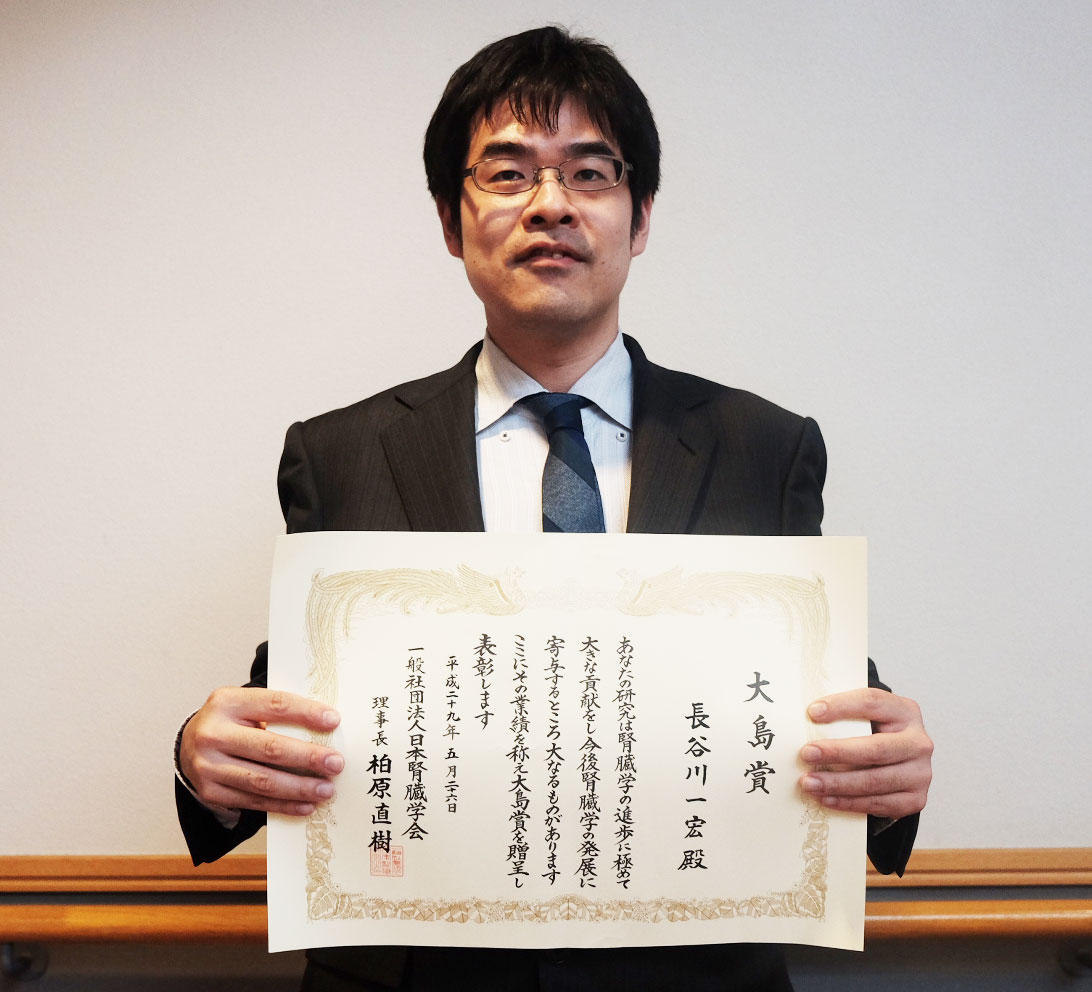 大島賞
長谷川一宏殿
あなたの研究は腎臓学の進歩に極めて
大きな貢献をし今後腎臓学の発展に
寄与するところ大なるものがあります
ここにその業績を称え大島賞を贈呈し
表彰します
平成二十九年五月二十六日
一般社団法人日本腎臓学会
理事長 柏原直樹